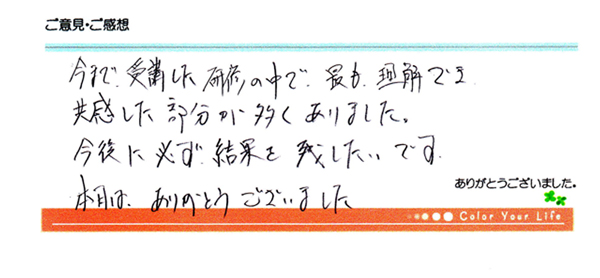 ご意見・ご感想
今まで、受講した研修の中で、最も理解でき
共感した部分が多くありました。
今後に必ず結果を残したいです
本日は、ありがとうございました
ありがとうございました。
Color Your Life